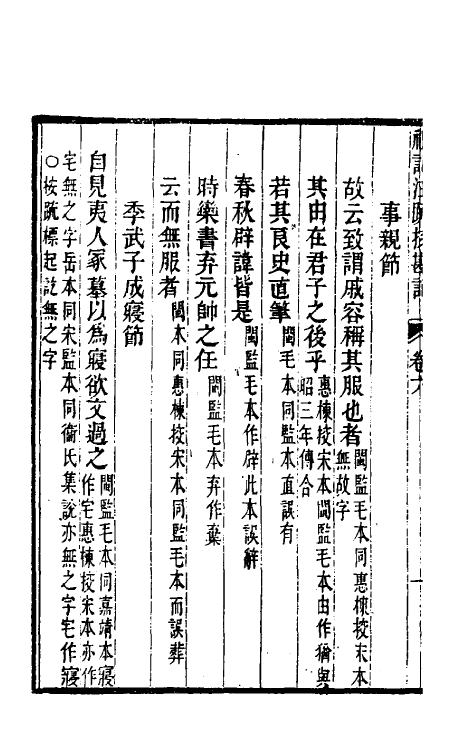 禮記注疏挍勘記 卷六
事親節
故云致謂戚容稱其服也者閩監毛本同惠棟挍宋本無故字
其由在君子之後乎惠棟挍宋本閩監毛本由作猶與昭三年傳合
若其良史直筆閩毛本同監本直誤有
春秋辟諱皆是閩監毛本作辟此本誤解
時欒書弃元帥之任閩監毛本弃作棄
云而無服者閩本同惠棟挍宋本同監毛本而誤葬
季武子成寢節
自見夷人冢墓以為寢欲文過之閩監毛本同嘉靖本寢作宅惠棟挍宋本亦作
宅無之字岳本同宋監本同衛氏集說亦無之字宅作寢
○按疏標起訖無之字